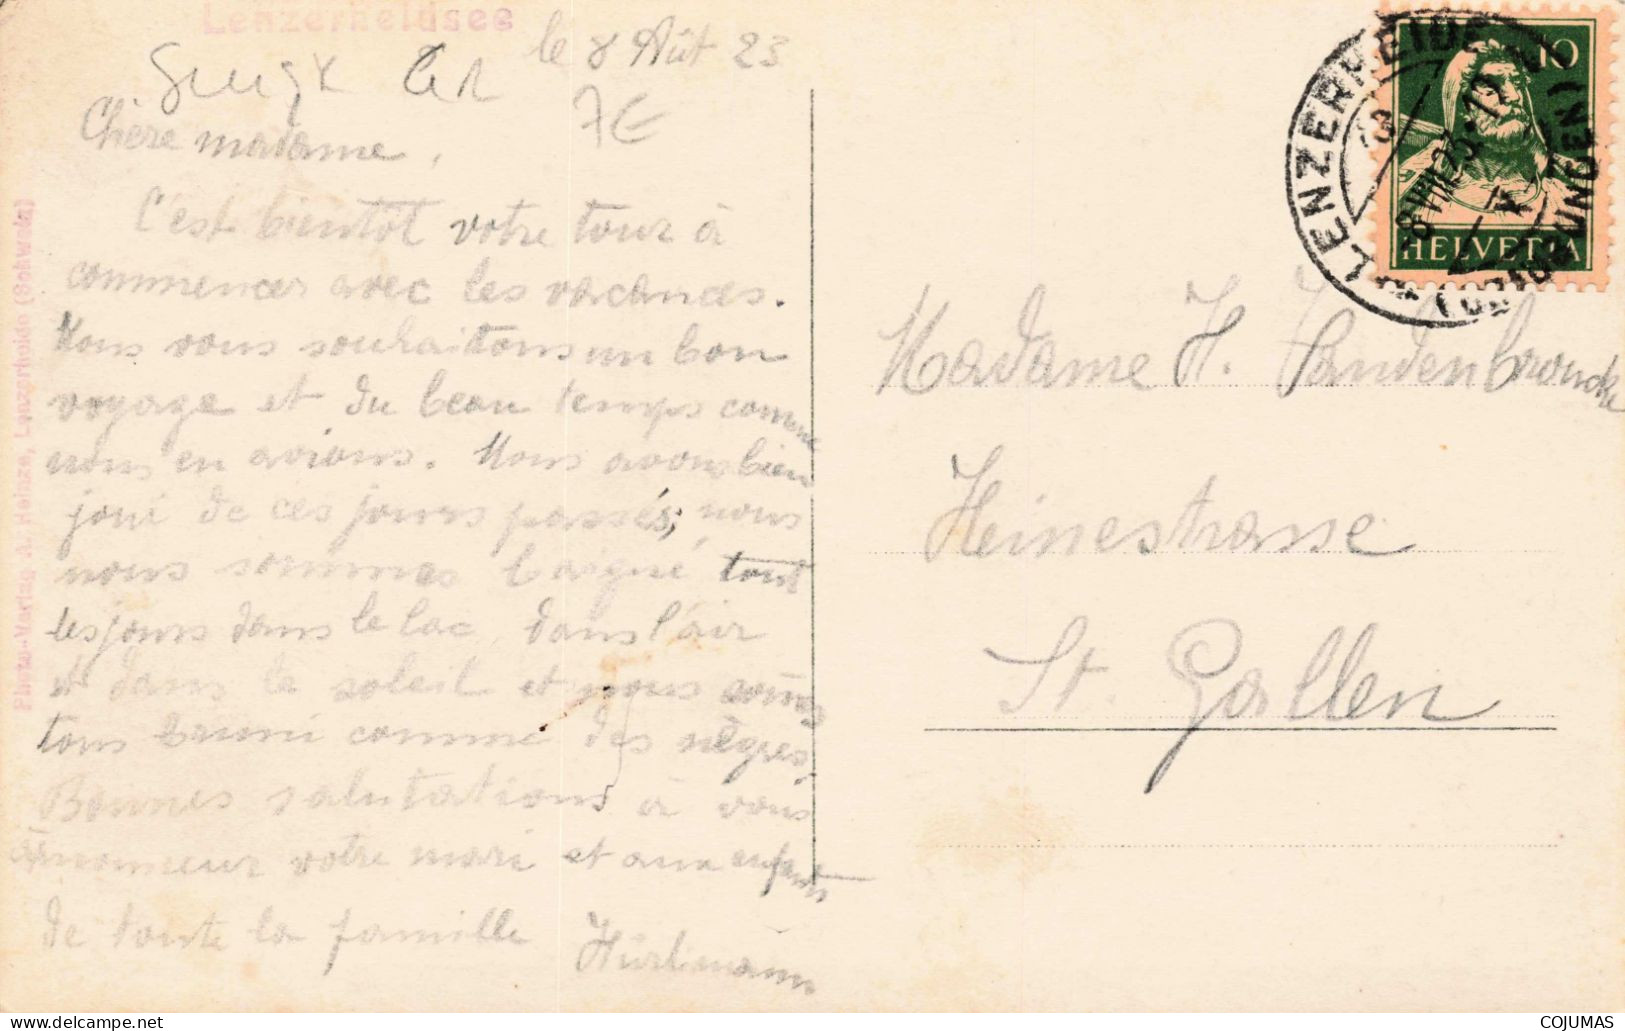 Lenzerheidsee
le 8 Aût 23
7€
Chère madame,
C'est bientôt votre tour à
commencer avec les vacances.
Nous vous souhaitons un bon
voyage et du beau temps comme
nous en avions. Nous avons bien
joui de ces jours passés, nous
nous sommes baigné tout
les jours dans le lac, dans l'air
et dans le soleil et nous somes
tous bruni comme des nègres.
Bonnes salutations à vous
à monsieur votre mari et aux enfants
de toute la famille Hürlimann
Photo-Verlag A. Heinze, Lenzerheide (Schweiz)
10
HELVETIA
LENZERHEIDE
8.VIII.23.-12
(GRAUBÜNDEN)
Madame H. Vandenbroucke
Heinestrasse
St. Gallen
COJUMAS